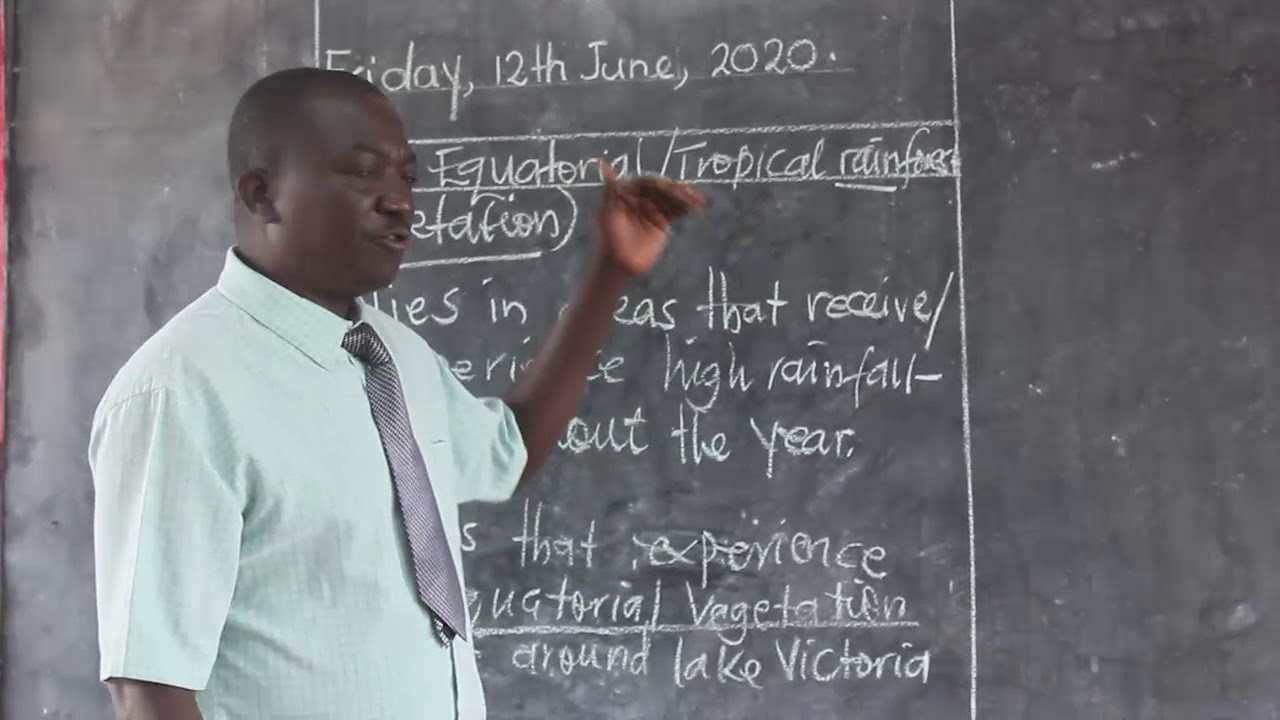 Friday, 12th June, 2020.
Equatorial/Tropical rainforest
etation)
lies in areas that receive/
high rainfall-
out the year.
that experience
quatorial Vegetation
around lake Victoria